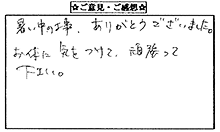 ☆ご意見・ご感想☆
暑い中の工事、ありがとうございました。
お体に気をつけて、頑張って
下さい。